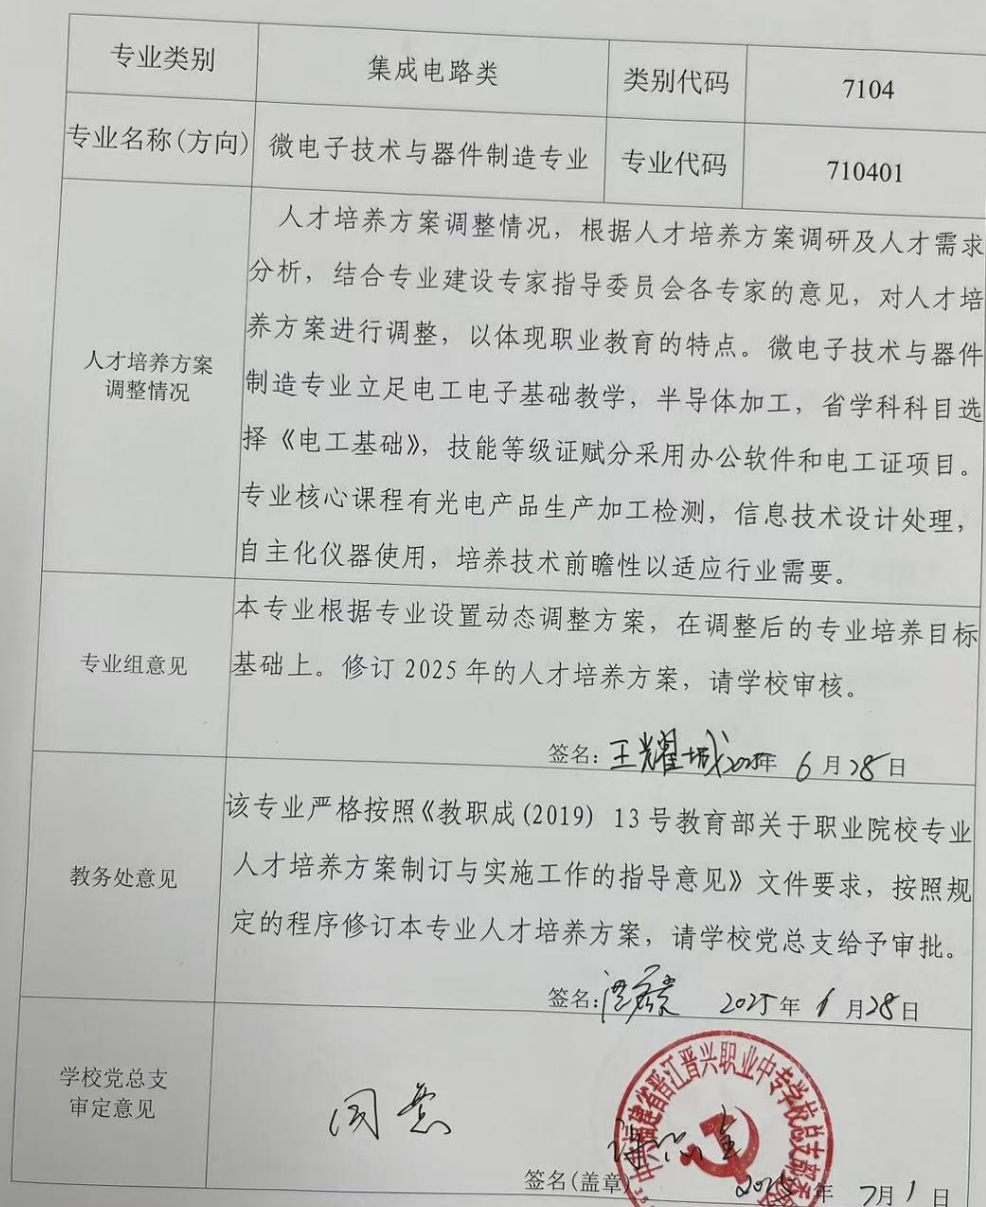 专业类别 集成电路类 类别代码 7104
专业名称(方向) 微电子技术与器件制造专业 专业代码 710401
人才培养方案
调整情况
人才培养方案调整情况，根据人才培养方案调研及人才需求
分析，结合专业建设专家指导委员会各专家的意见，对人才培
养方案进行调整，以体现职业教育的特点。微电子技术与器件
制造专业立足电工电子基础教学，半导体加工，省学科科目选
择《电工基础》，技能等级证赋分采用办公软件和电工证项目。
专业核心课程有光电产品生产加工检测，信息技术设计处理，
自主化仪器使用，培养技术前瞻性以适应行业需要。
专业组意见
本专业根据专业设置动态调整方案，在调整后的专业培养目标
基础上。修订 2025 年的人才培养方案，请学校审核。
签名：王耀城 2025年 6月28日
教务处意见
该专业严格按照《教职成(2019) 13号教育部关于职业院校专业
人才培养方案制订与实施工作的指导意见》文件要求，按照规
定的程序修订本专业人才培养方案，请学校党总支给予审批。
签名： 2025年 6月28日
学校党总支
审定意见
同意
中共福建省晋江晋兴职业中专学校总支部委
签名(盖章) 2025年 7月1日